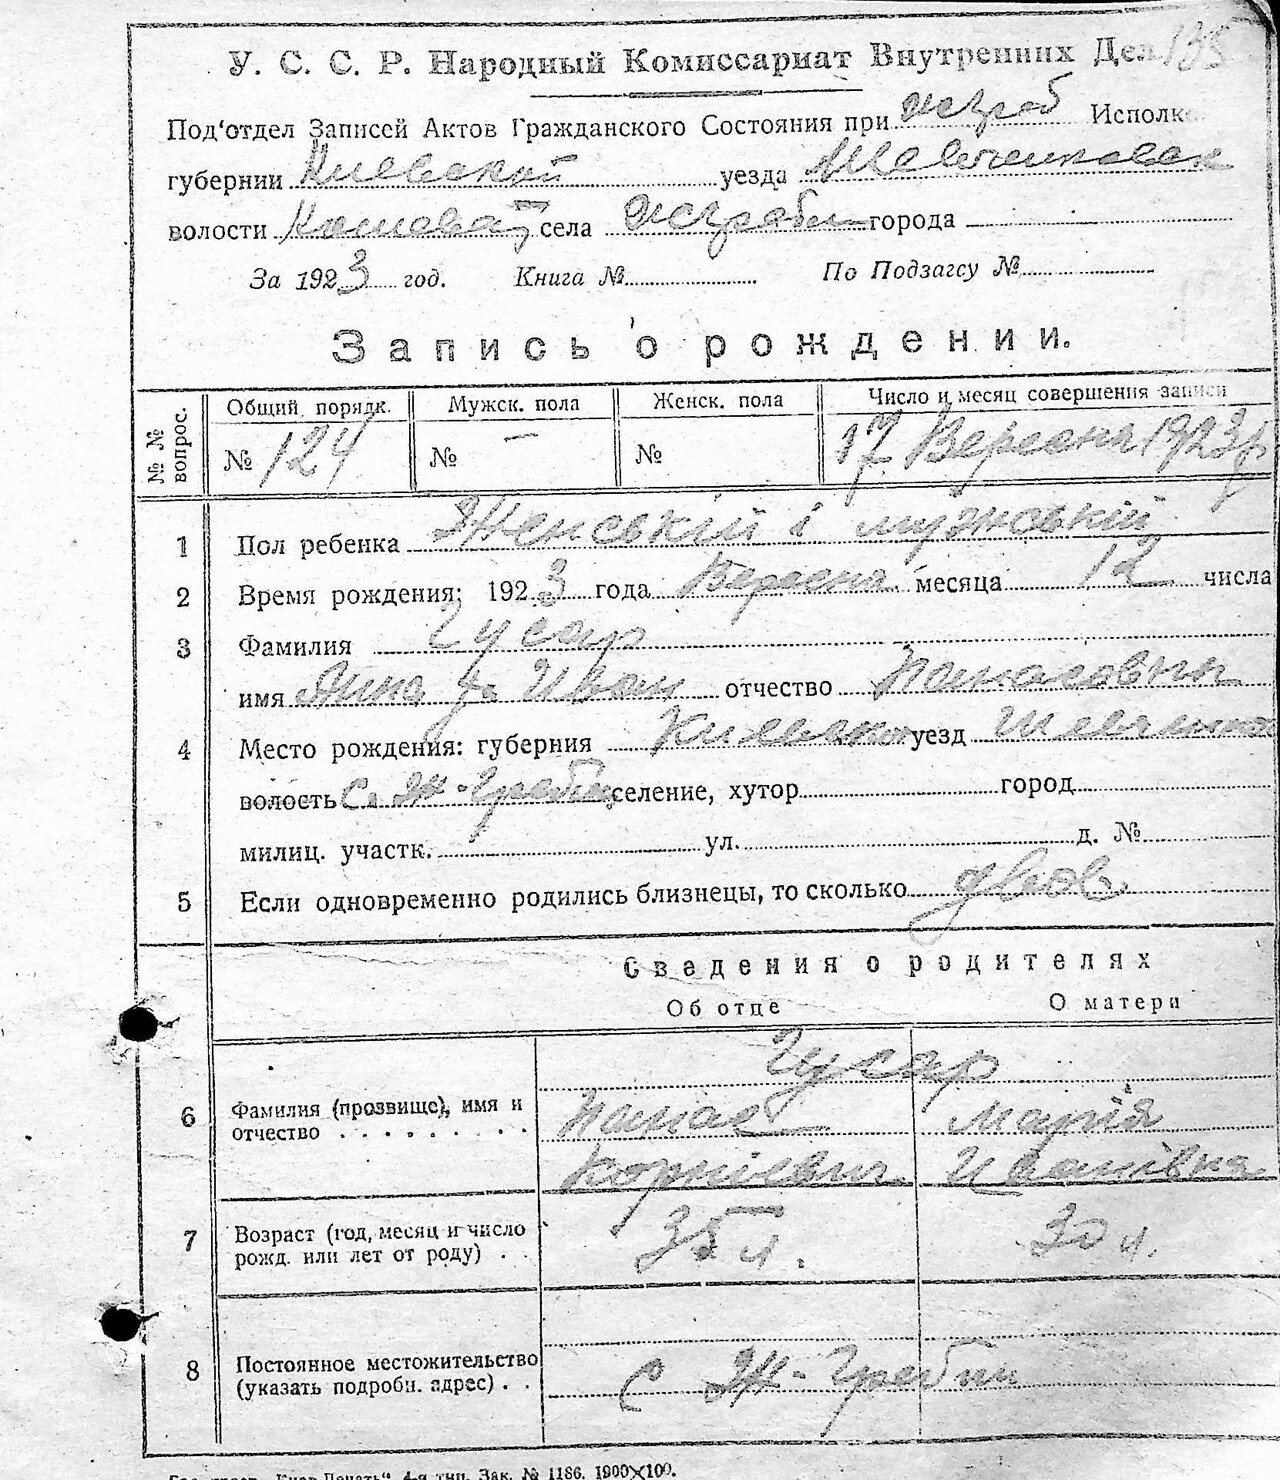 135
У. С. С. Р. Народный Комиссариат Внутренних Дел
Под'отдел Записей Актов Гражданского Состояния при Исполк
губернии Киевской уезда Шевченковск
волости села города
За 1923 год. Книга № По Подзагсу №
Запись о рождении.
№ № вопрос. Общий порядк. Мужск. пола Женск. пола Число и месяц совершения записи
№ 124 № — № 17 Вересня 1923 р
1 Пол ребенка Женський і мужській
2 Время рождения: 1923 года Вересня месяца 12 числа
3 Фамилия Гусар
имя Анна Иван отчество Панасовны
4 Место рождения: губерния уезд
волость С. Ж-Гребли селение, хутор город
милиц. участк. ул. д. №
5 Если одновременно родились близнецы, то сколько двое
Сведения о родителях
Об отце О матери
Гусар
6 Фамилия (прозвище), имя и Панас Марія
отчество Корніевич Иванівна
7 Возраст (год, месяц и число 35 л. 30 л.
рожд. или лет от роду)
8 Постоянное местожительство
(указать подробн. адрес) С Ж-Гребли
4-я тип. Зак. № 1186. 1900×100.